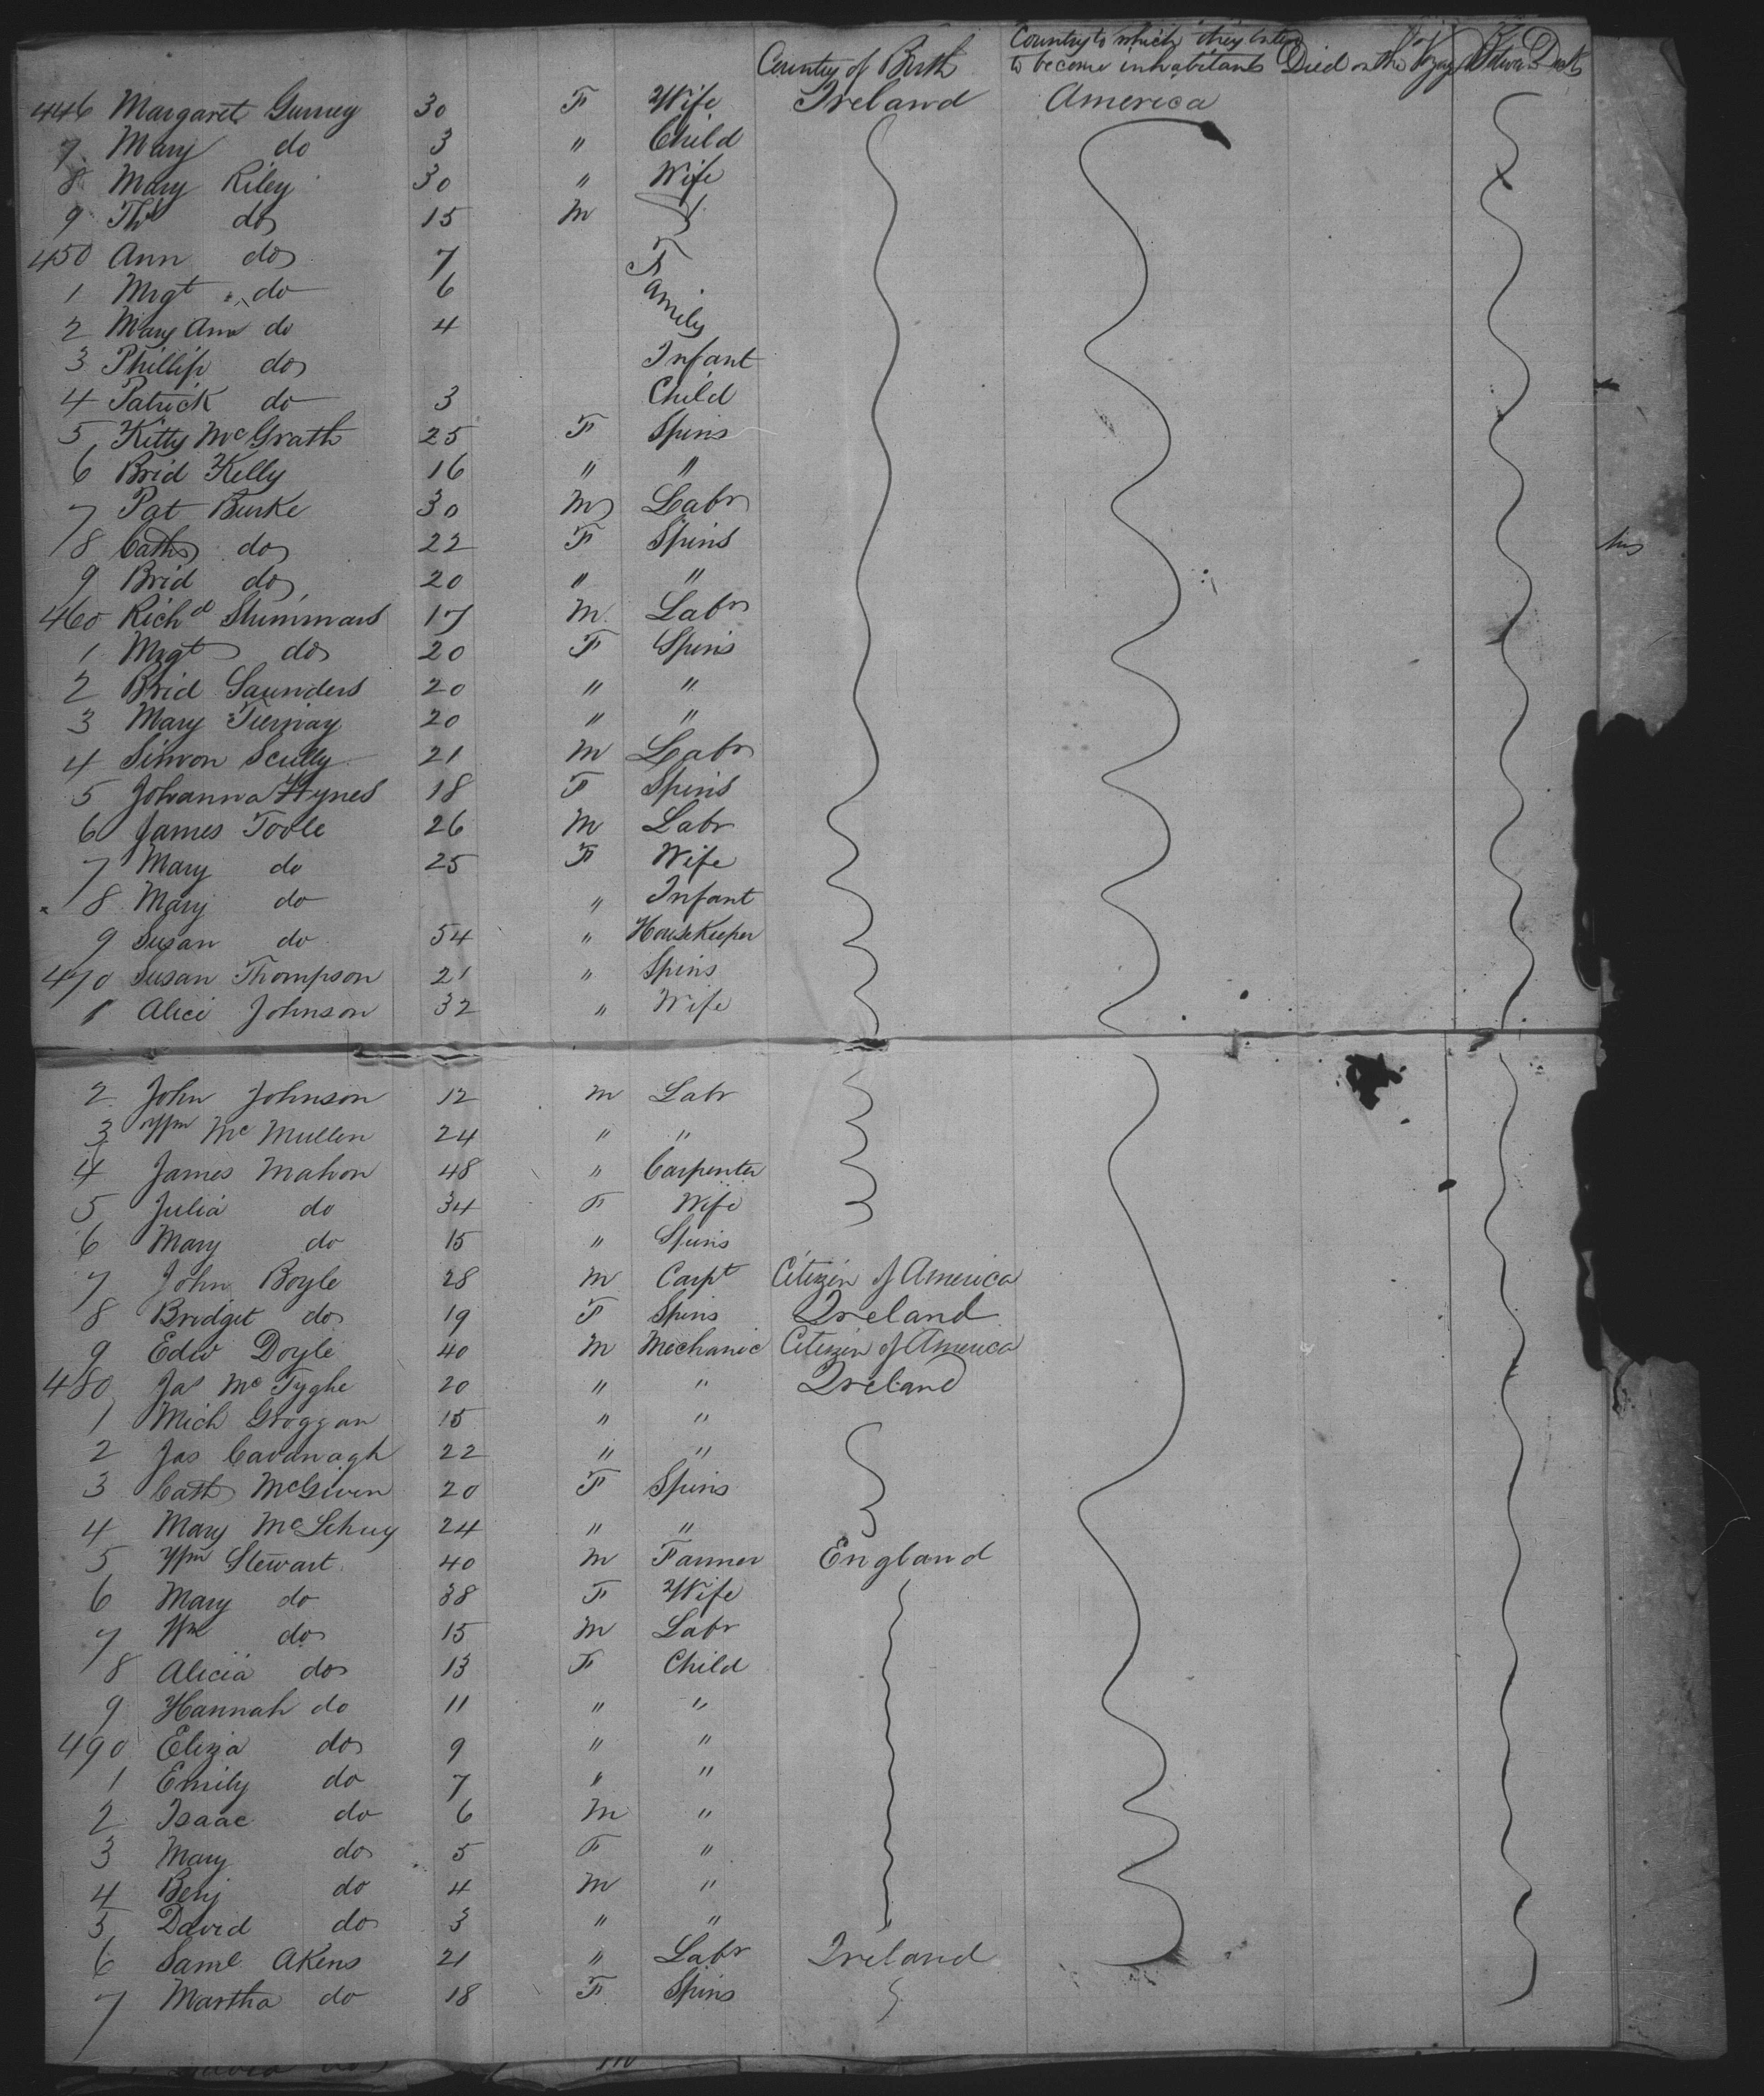 Country of Birth Country to which they inten to become inhabitants Died on the Voyage
446 Margaret Gurney 30 F Wife Ireland America
7 Mary do 3 " Child
8 Mary Riley 30 " Wife
9 Th do 15 M
450 Ann do 7 Family
1 Mrgt do 6
2 Mary Ann do 4
3 Phillip do Infant
4 Patrick do 3 Child
5 Kitty McGrath 25 F Spins
6 Brid Kelly 16 " "
7 Pat Burke 30 M Labr
8 Cath do 22 F Spins
9 Brid do 20 " "
460 Richd Shimmars 17 M Labr
1 Mrgt do 20 F Spins
2 Brid Saunders 20 " "
3 Mary Tiernay 20 " "
4 Simon Scully 21 M Labr
5 Johanna Hynes 18 F Spins
6 James Toole 26 M Labr
7 Mary do 25 F Wife
8 Mary do " Infant
9 Susan do 54 " HouseKeeper
470 Susan Thompson 21 " Spins
1 Alice Johnson 32 " Wife
2 John Johnson 12 M Labr
3 Wm McMullen 24 " "
4 James Mahon 48 " Carpenter
5 Julia do 34 F Wife
6 Mary do 15 " Spins
7 John Boyle 28 M Carpt Citizen of America
8 Bridget do 19 F Spins Ireland
9 Edw Doyle 40 M Mechanic Citizen of America
480 Jas McTyghe 20 " " Ireland
1 Mich Groggan 15 " "
2 Jas Cavanagh 22 " "
3 Cath McGiven 20 F Spins
4 Mary 24 " "
5 Wm Stewart 40 M Farmer England
6 Mary do 38 F Wife
7 Wm do 15 M Labr
8 Alicia do 13 F Child
9 Hannah do 11 " "
490 Eliza do 9 " "
1 Emily do 7 " "
2 Isaac do 6 M "
3 Mary do 5 F "
4 Benj do 4 M "
5 David do 3 " "
6 Saml Akens 21 " Labr Ireland
7 Martha do 18 F Spins